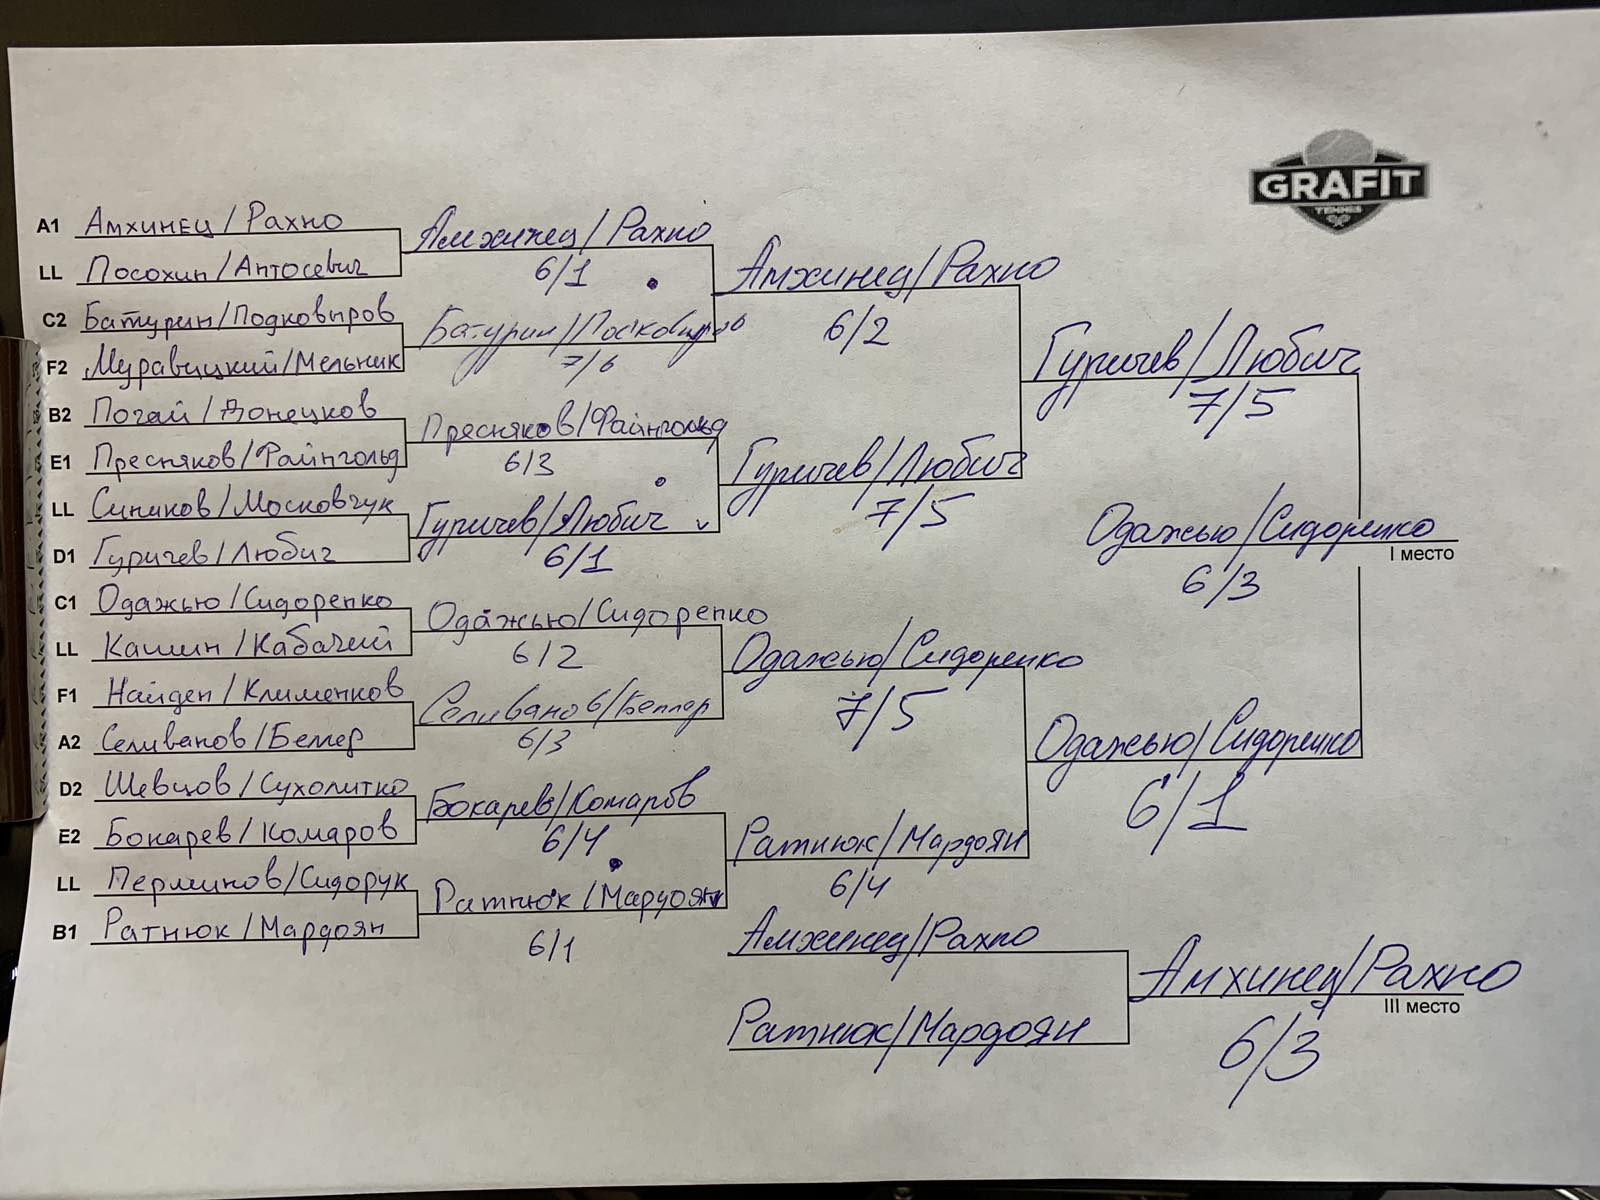 GRAFIT
TENNIS
A1 Амхинец/Рахно
LL Посохин/Антосевич
C2 Батурин/Подковыров
F2 Муравицкий/Мельник
B2 Погай/Донецков
E1 Пресняков/Файнгольд
LL Сиников/Московчук
D1 Гуричев/Любич
C1 Одажью/Сидоренко
LL Кашин/Кабачий
F1 Найден/Клименков
A2 Селиванов/Беллер
D2 Шевцов/Сухолитко
E2 Бокарев/Комаров
LL Перминов/Сидорук
B1 Ратнюк/Мардоян
Амхинец/Рахно
6/1
Батурин/
7/6
Пресняков/Файнгольд
6/3
Гуричев/Любич
6/1
Одажью/Сидоренко
6/2
Селиванов/Беллер
6/3
Бокарев/Комаров
6/4
Ратнюк/Мардоян
6/1
Амхинец/Рахно
6/2
Гуричев/Любич
7/5
Одажью/Сидоренко
7/5
Ратнюк/Мардоян
6/4
Гуричев/Любич
7/5
Одажью/Сидоренко
6/1
Одажью/Сидоренко
I место
6/3
Амхинец/Рахно
Ратнюк/Мардоян
Амхинец/Рахно
III место
6/3